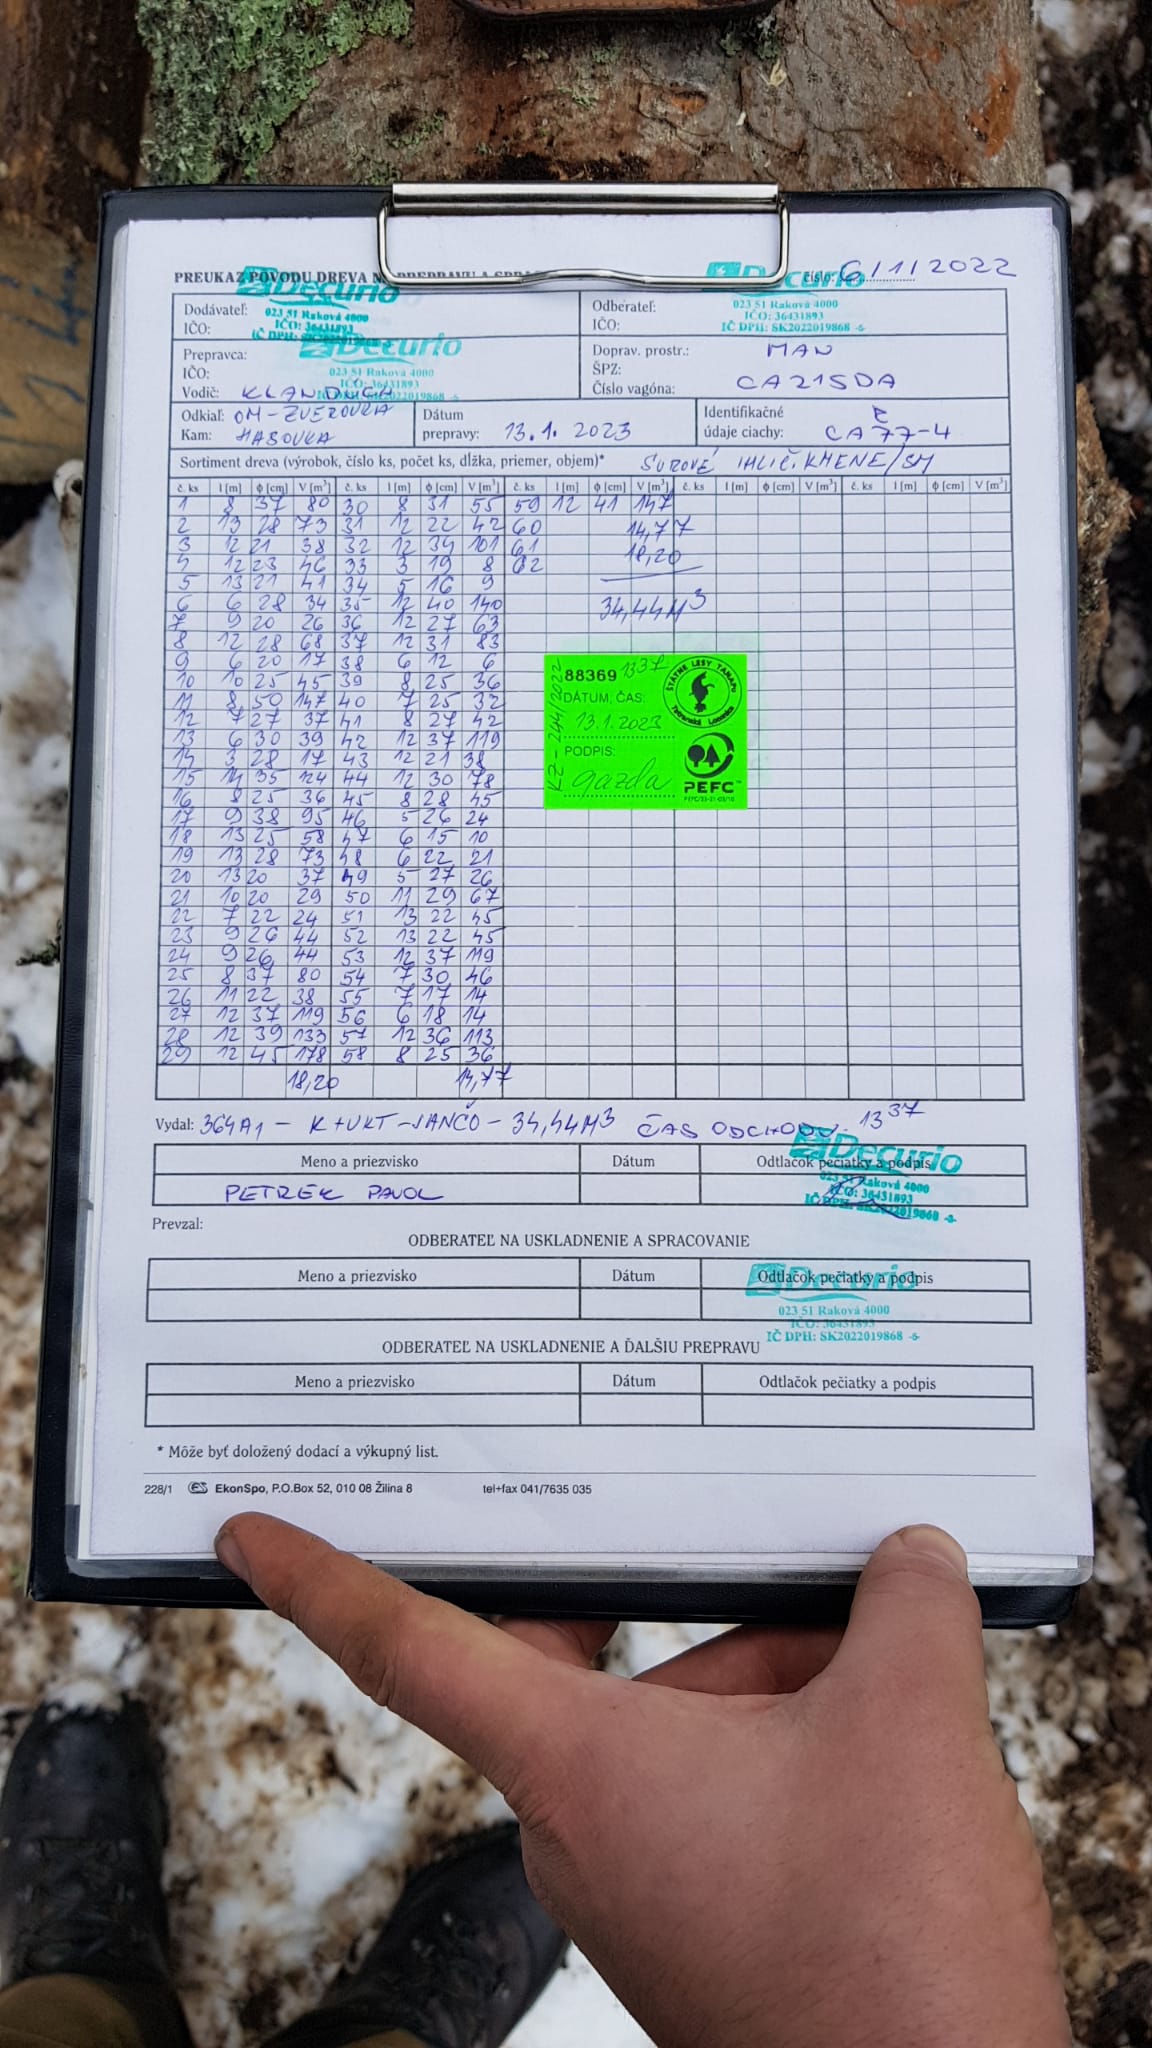 PREUKAZ PÔVODU DREVA NA PREPRAVU A
číslo: 6/1/2022
Decurio
023 51 Raková 4000
IČO: 36431893
IČ DPH: SK2022019868 -5-
Decurio
023 51 Raková 4000
IČO: 36431893
IČ DPH: SK2022019868 -5-
Dodávateľ:
IČO:
Odberateľ:
IČO:
Decurio
023 51 Raková 4000
IČO: 36431893
Prepravca:
IČO:
Vodič:
Doprav. prostr.: MAN
ŠPZ:
Číslo vagóna: CA215DA
Odkiaľ: OM-ZVEROVKA
Kam: HABOVKA
Dátum
prepravy: 13.1.2023
Identifikačné
údaje ciachy: CA77-4
Sortiment dreva (výrobok, číslo ks, počet ks, dĺžka, priemer, objem)* SUROVÉ IHLIČ. KMENE/SM
č. ks l [m] ϕ [cm] V [m³] č. ks l [m] ϕ [cm] V [m³] č. ks l [m] ϕ [cm] V [m³] č. ks l [m] ϕ [cm] V [m³] č. ks l [m] ϕ [cm] V [m³]
1 8 37 80 30 8 31 55 59 12 41 147
2 13 28 73 31 12 22 42 60 14,77
3 12 21 38 32 12 34 101 61 18,20
4 12 23 46 33 3 19 8 62
5 13 21 41 34 5 16 9
6 6 28 34 35 12 40 140 34,44M3
7 9 20 26 36 12 27 63
8 12 28 68 37 12 31 83
9 6 20 17 38 6 12 6
10 10 25 45 39 8 25 36
11 8 50 147 40 7 25 32
12 7 27 37 41 8 27 42
13 6 30 39 42 12 37 119
14 3 28 17 43 12 21 38
15 14 35 124 44 12 30 78
16 8 25 36 45 8 28 45
17 9 38 95 46 5 26 24
18 13 25 58 47 6 15 10
19 13 28 73 48 6 22 21
20 13 20 37 49 5 27 26
21 10 20 29 50 11 29 67
22 7 22 24 51 13 22 45
23 9 26 44 52 13 22 45
24 9 26 44 53 12 37 119
25 8 37 80 54 7 30 46
26 11 22 38 55 7 17 14
27 12 37 119 56 6 18 14
28 12 39 133 57 12 36 113
29 12 45 178 58 8 25 36
18,20 14,77
88369 1337
DÁTUM, ČAS:
13.1.2023
PODPIS:
gazda
KZ-244/2022
ŠTÁTNE LESY TANAPu
Tatranská Lomnica
PEFC™
Vydal: 364A1 - K+VKT-JANČO - 34,44M3 ČAS ODCHODU. 13 37
Meno a priezvisko Dátum Odtlačok pečiatky a podpis
PETREK PAVOL
Decurio
023 51 Raková 4000
IČO: 36431893
IČ DPH: SK2022019868 -5-
Prevzal:
ODBERATEĽ NA USKLADNENIE A SPRACOVANIE
Meno a priezvisko Dátum Odtlačok pečiatky a podpis
Decurio
023 51 Raková 4000
IČO: 36431893
IČ DPH: SK2022019868 -5-
ODBERATEĽ NA USKLADNENIE A ĎALŠIU PREPRAVU
Meno a priezvisko Dátum Odtlačok pečiatky a podpis
* Môže byť doložený dodací a výkupný list.
228/1 EkonSpo, P.O.Box 52, 010 08 Žilina 8 tel+fax 041/7635 035